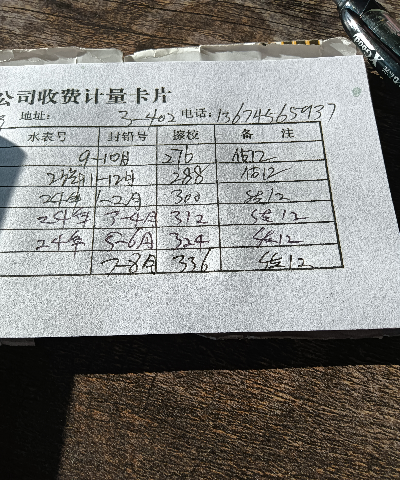 公司收费计量卡片
地址: 3-402 电话: 13674565937
水表号 封铅号 擦校 备 注
9-10月 276 估12
23年 11-12月 288 估12
24年 1-2月 300 估12
24年 3-4月 312 估12
24年 5-6月 324 估12
7-8月 336 估12